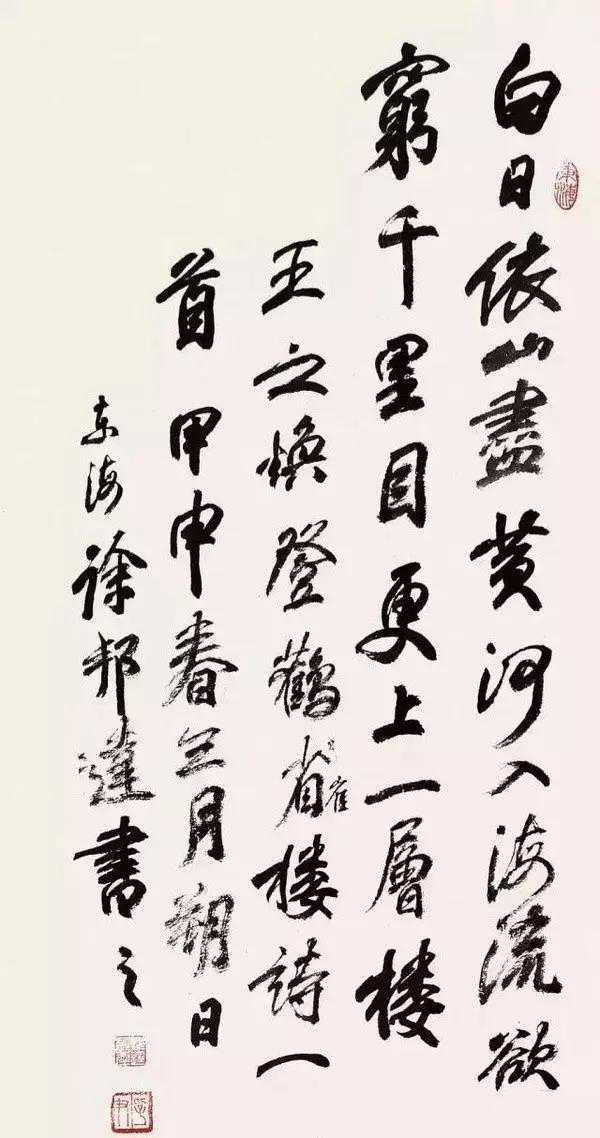 白日依山盡黄河入海流欲
窮千里目更上一層楼
王之焕登鸛雀楼詩一
首 甲申春三月朔日
东海徐邦達書之